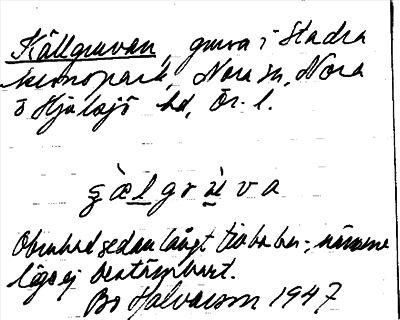 Källgruvan, gruva i Stadra
kronopark, Nora sn, Nora
o Hjulsjö hd, Ör. l.
ʒ̀ælgrùva
Obruten sedan långt tillbaka, närmre
läge ej bestämbart.
Bo Halvarson 1947